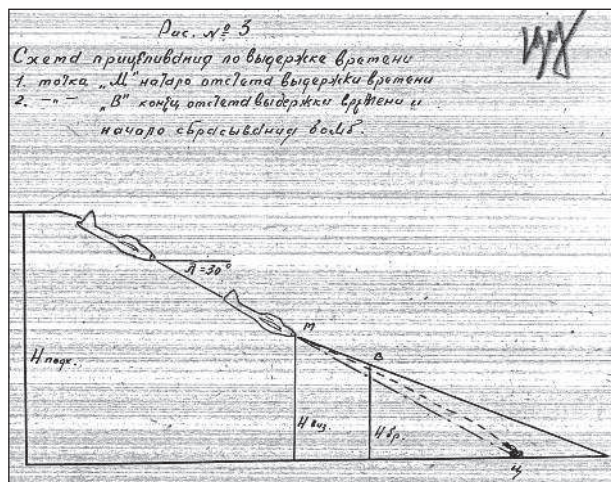 Рис. № 3
Схема прицеливания по выдержке времени
1. точка „М" начало отсчета выдержки времени
2. -"- „В" конец отсчета выдержки времени и
начало сбрасывания бомб.
Л=30°
М
В
Н подх.
Н виз.
Н бр.
Ц